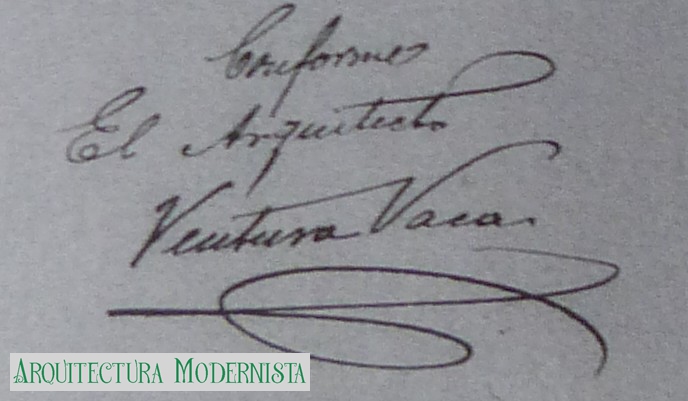 Conforme
El Arquitecto
Ventura Vaca
ARQUITECTURA MODERNISTA